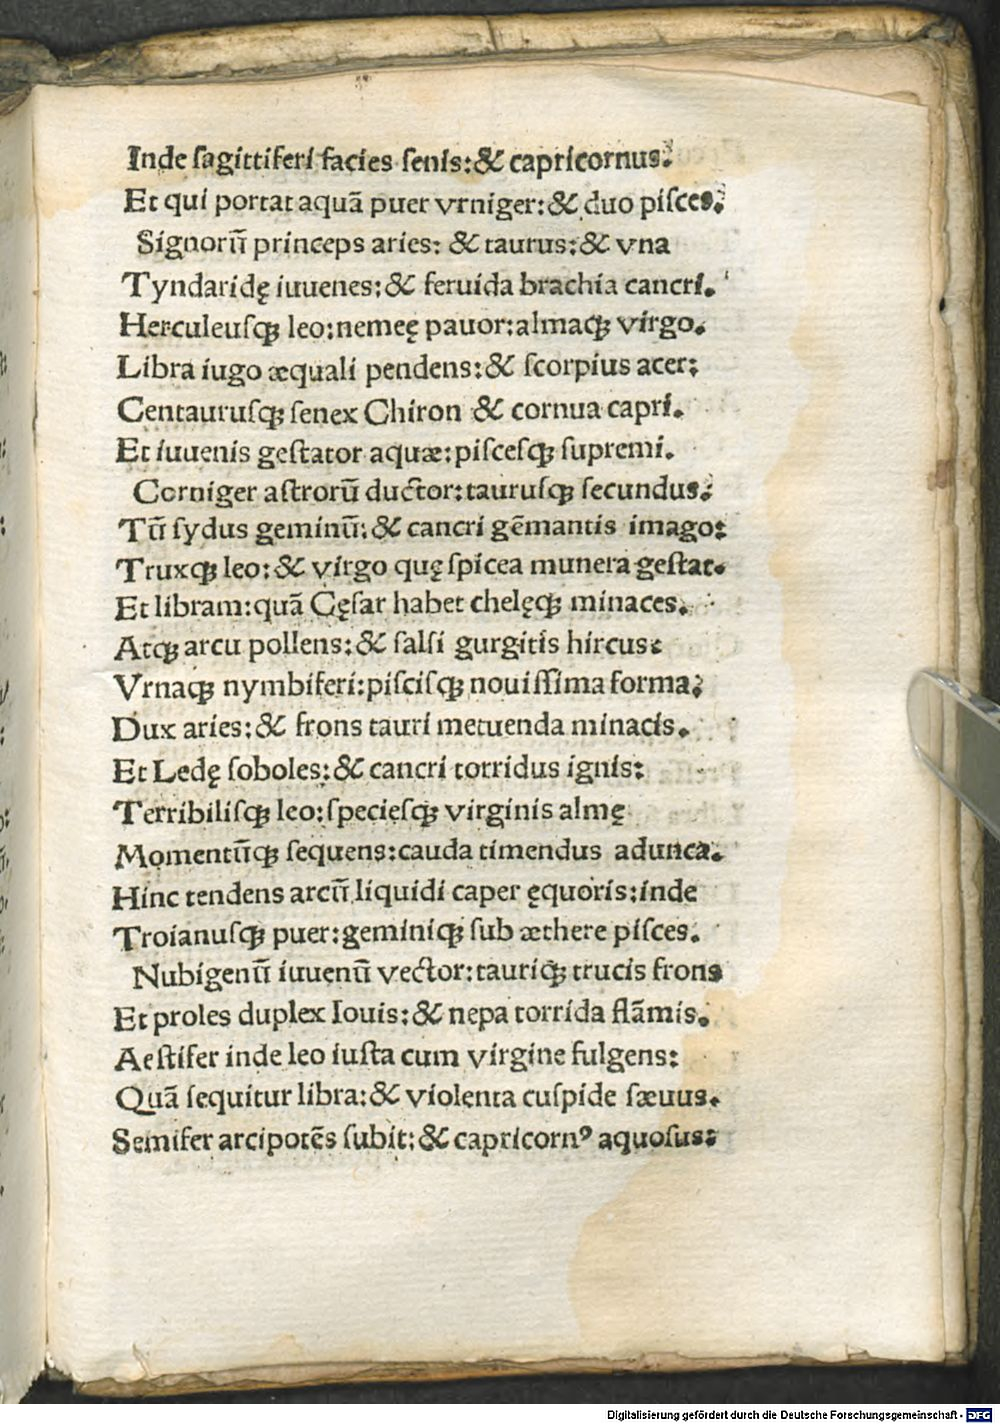 Inde ſagittiferi facies ſenis:& capricornus:
Et qui portat aquã puer vrniger:& duo piſces:
Signorũ princeps aries: & taurus:& vna
Tyndaridę iuuenes:& feruida brachia cancri.
Herculeuſqꝫ leo:nemeę pauor:almaqꝫ virgo.
Libra iugo æquali pendens:& ſcorpius acer:
Centauruſqꝫ ſenex Chiron & cornua capri.
Et iuuenis geſtator aquæ:piſceſqꝫ ſupremi.
Corniger aſtrorũ ductor:tauruſqꝫ ſecundus:
Tũ ſydus geminũ:& cancri gẽmantis imago:
Truxqꝫ leo:& virgo quę ſpicea munera geſtat.
Et libram:quã Cęſar habet chelęqꝫ minaces.
Atqꝫ arcu pollens:& ſalſi gurgitis hircus:
Vrnaqꝫ nymbiferi:piſciſqꝫ nouiſſima forma:
Dux aries:& frons tauri metuenda minacis.
Et Ledę ſoboles:& cancri torridus ignis:
Terribiliſqꝫ leo:ſpecieſqꝫ virginis almę
Momentũqꝫ ſequens:cauda timendus adunca.
Hinc tendens arcũ liquidi caper ęquoris:inde
Troianuſqꝫ puer:geminiqꝫ ſub æthere piſces.
Nubigenũ iuuenũ vector:tauriqꝫ trucis frons
Et proles duplex Iouis:& nepa torrida flãmis.
Aeſtifer inde leo iuſta cum virgine fulgens:
Quã ſequitur libra:& violenta cuſpide ſæuus.
Semifer arcipotẽs ſubit:& capricornꝰ aquoſus:
Digitalisierung gefördert durch die Deutsche Forschungsgemeinschaft - DFG